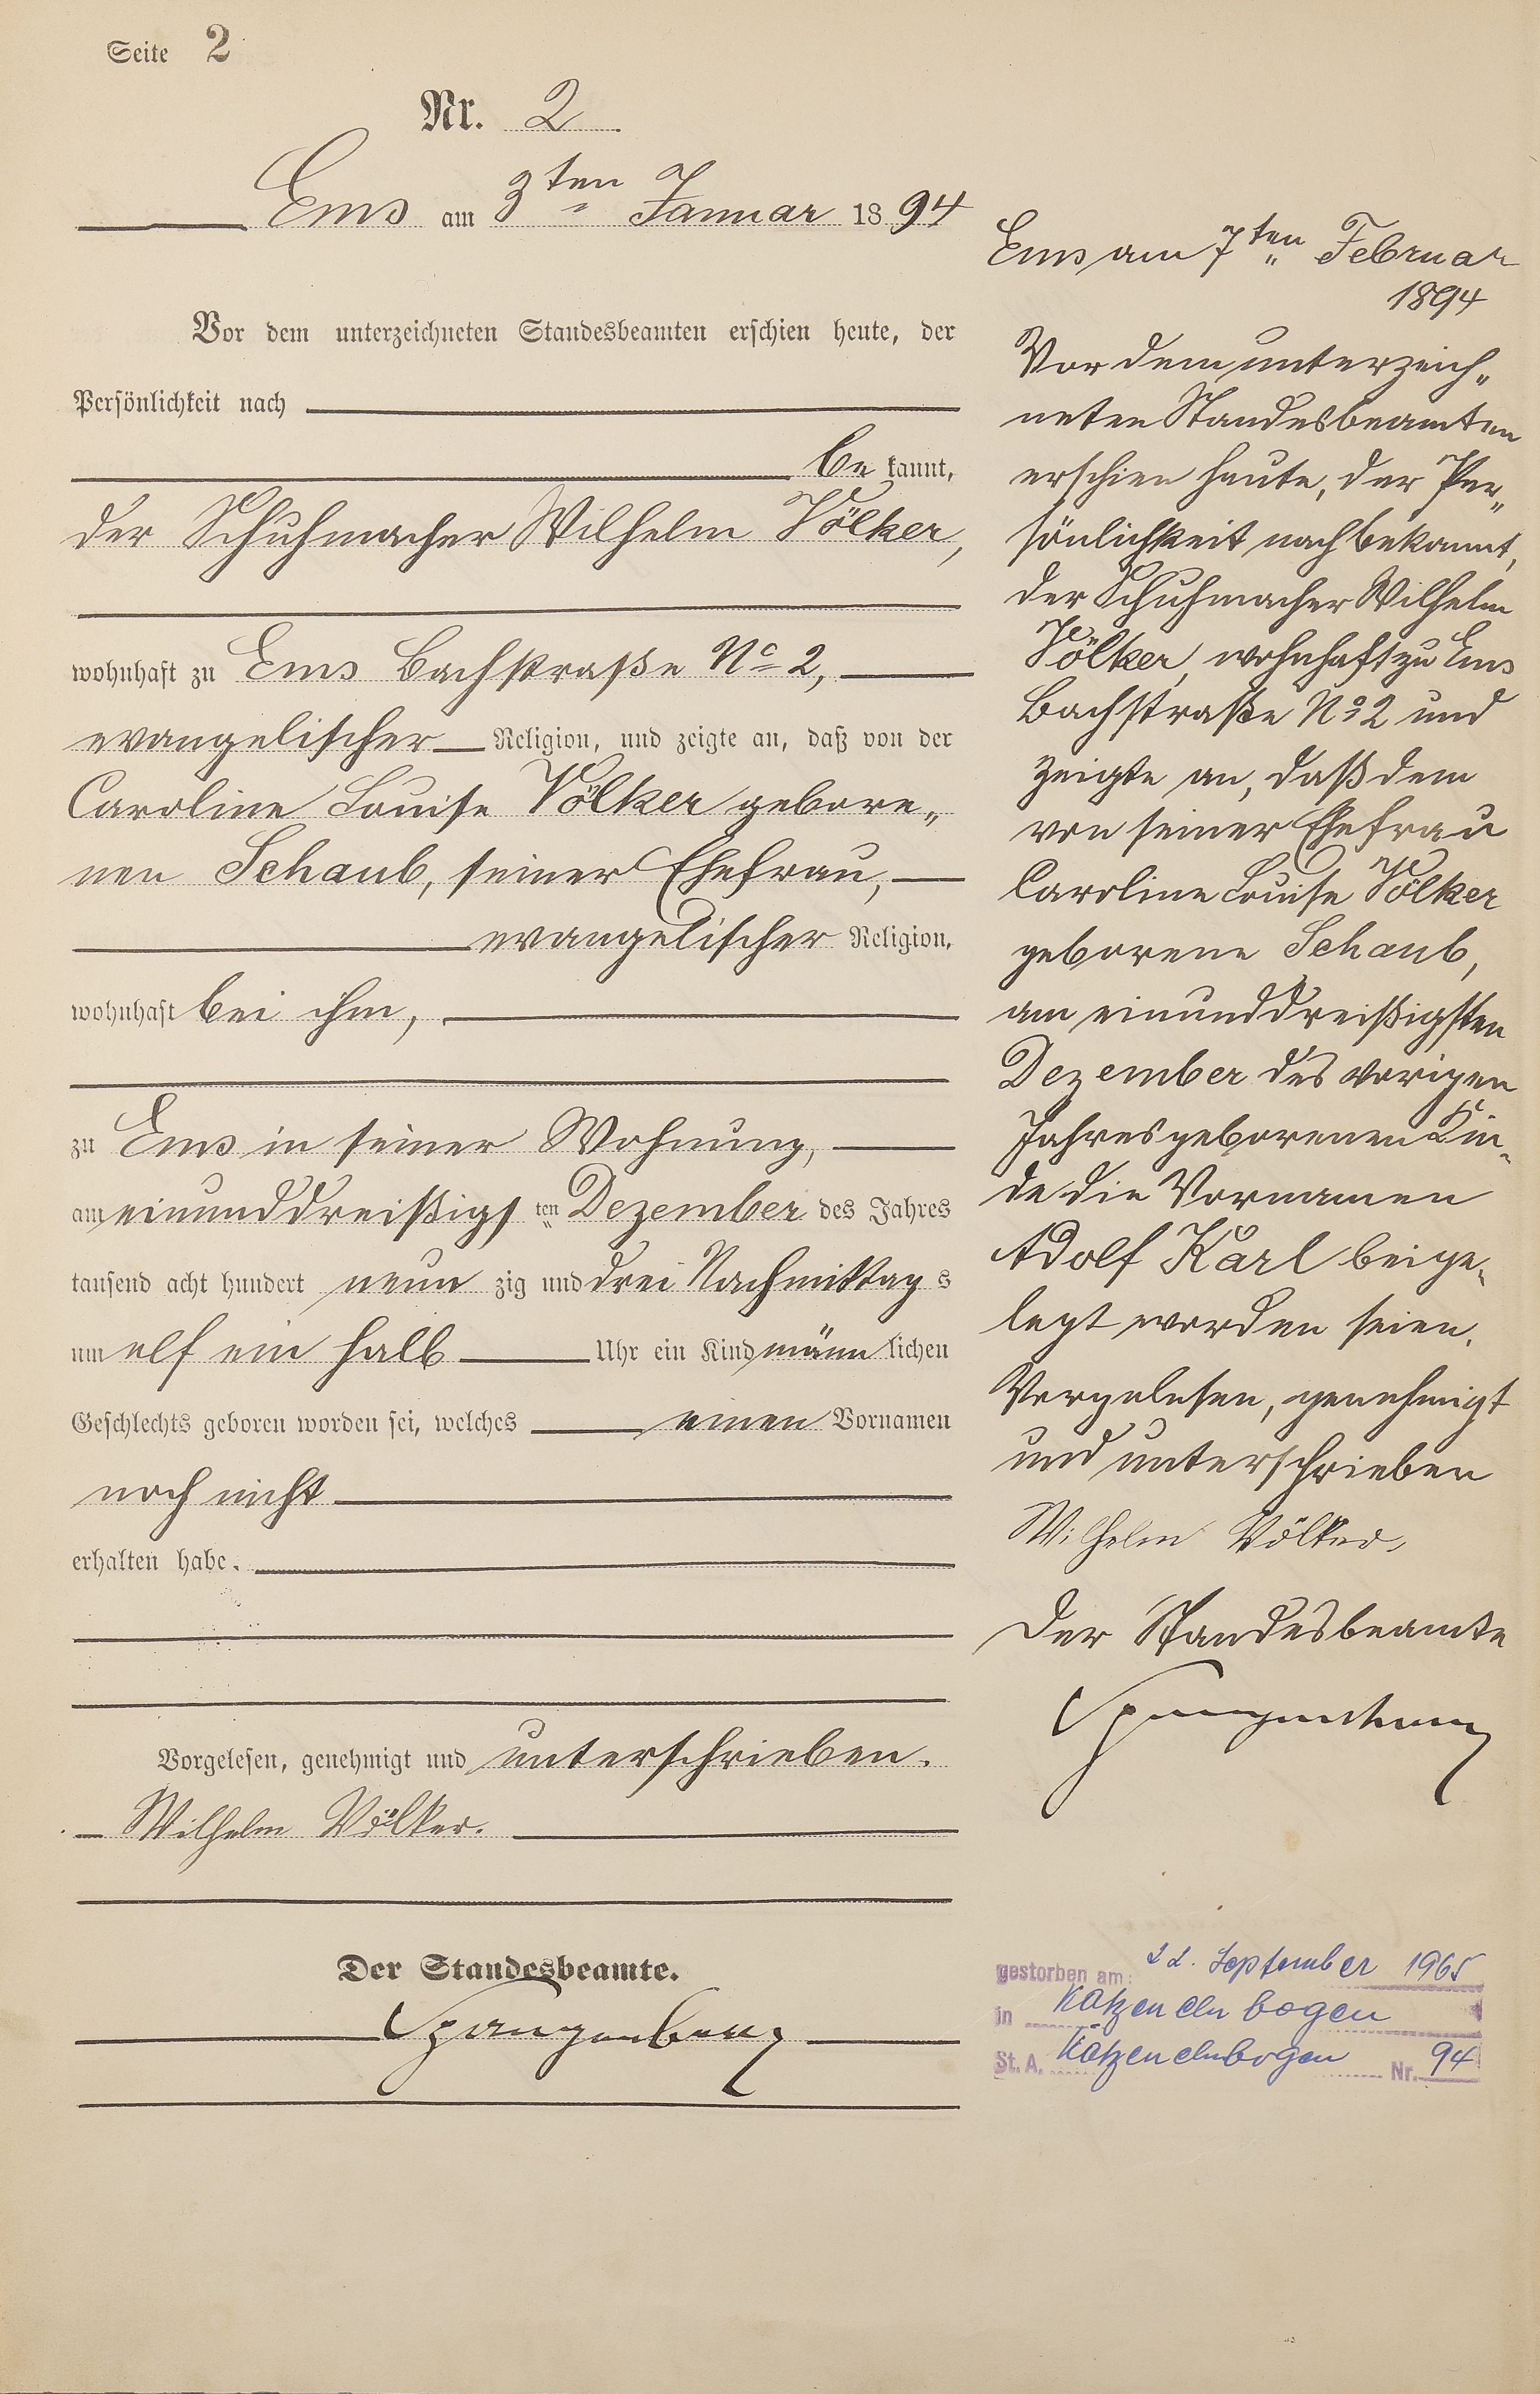 Seite 2
Nr. 2
Ems am 3ten Januar 1894
Vor dem unterzeichneten Standesbeamten erschien heute, der
Persönlichkeit nach
be kannt,
der Schuhmacher Wilhelm Völker,
wohnhaft zu Ems Bachstraße No 2,
evangelischer Religion, und zeigte an, daß von der
Caroline Louise Völker gebore„
nen Schaub, seiner Ehefrau,
evangelischer Religion,
wohnhaft bei ihm,
zu Ems in seiner Wohnung,
am einunddreißigs ten Dezember des Jahres
tausend acht hundert neun zig und drei Nachmittag s
um elf ein halb Uhr ein Kind männ lichen
Geschlechts geboren worden sei, welches einen Vornamen
noch nicht
erhalten habe.
Vorgelesen, genehmigt und unterschrieben.
Wilhelm Völker.
Der Standesbeamte.
Spangenberg
Ems am 7ten Februar
1894
Vor dem unterzeich„
neten Standesbeamten
erschien heute, der Per„
sönlichkeit nach bekannt,
der Schuhmacher Wilhelm
Völker, wohnhaft zu Ems
Bachstraße No 2 und
zeigte an, daß dem
von seiner Ehefrau
Caroline Louise Völker
geborene Schaub,
am einunddreißigsten
Dezember des vorigen
Jahres geborenen Kin„
de die Vornamen
Adolf Karl beige„
legt worden seien.
Vorgelesen, genehmigt
und unterschrieben
Wilhelm Völker,
Der Standesbeamte
Spangenberg
gestorben am: 22. September 1965
in Katzenelnbogen
St. A. Katzenelnbogen Nr. 94